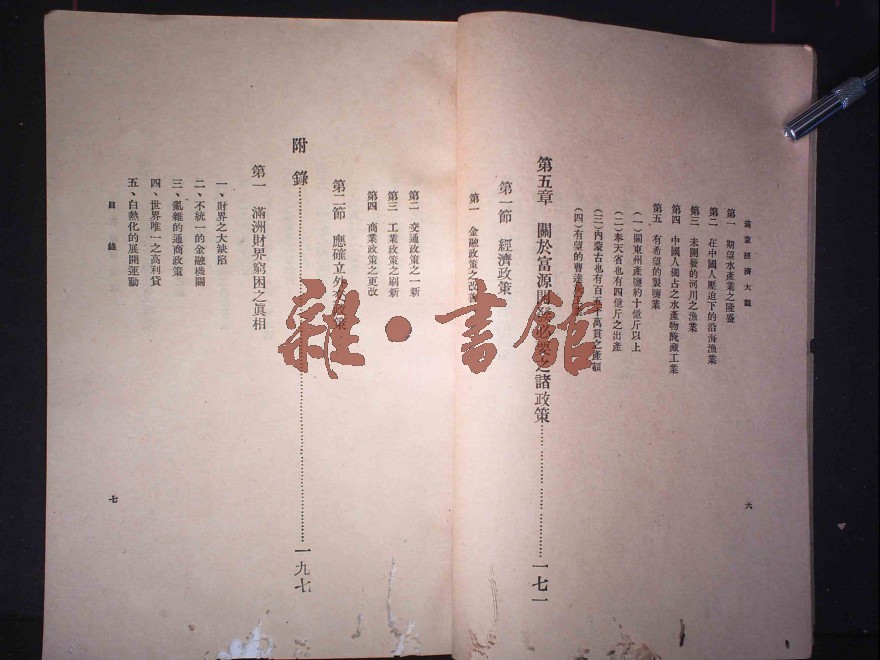 滿蒙經濟大觀
第一 期望水產業之隆盛
第二 在中國人壓迫下的沿海漁業
第三 未開發的河川之漁業
第四 中國人獨占之水產物醃藏工業
第五 有希望的製鹽業
(一)關東州產鹽約十億斤以上
(二)奉天省也有四億斤之出產
(三)內蒙古也有百五十萬貫之產額
(四)有望的曹達
第五章 關於富源開發必要之諸政策 一七一
第一節 經濟政策
第一 金融政策之改善
六
第二 交通政策之一新
第三 工業政策之刷新
第四 商業政策之更改
第二節 應確立外交政策
附錄 一九七
第一 滿洲財界窮困之眞相
一、財界之大缺陷
二、不統一的金融機關
三、亂雜的通商政策
四、世界唯一之高利貸
五、白熱化的展開運動
目錄
七
雜·書館